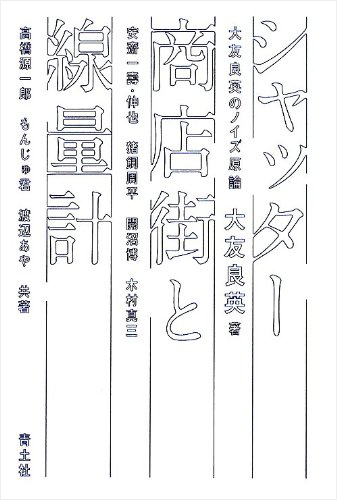 シャッター
大友良英のノイズ原論　大友良英　著
商店街と
安齋一壽・伸也　猪飼周平　開沼博　木村真三
線量計
高橋源一郎　もんじゅ君　渡辺あや　共著
青土社